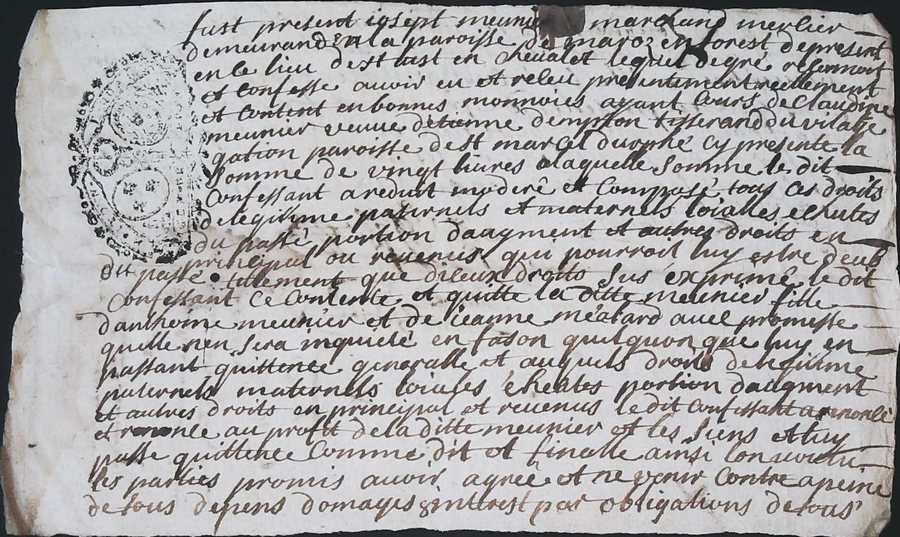 fust present iosept meunier marchand merlier
demeurand en la paroisse de maroz en forest de present
en le lieu de st iust en chevalet lequel de gre reconnoit
et confesse auoir eu et releu presentement reellement
et content en bonnes monnoies ayant cours de Claudine
meunier veuue detienne tisserand du vilage
gation paroisse de st marcel durphé cy presente la
somme de vingt liures a laquelle somme le dit
Confessant a reduit moderé et Composé tous ces droits
de legitime paternels et maternels loialles echutes
du passé portion daagment et autres droits en
du passé principal ou reuenus qui pourroit luy estre deub
tellement que diceux droits sus exprimé le dit
Confessant ce contente et quitte la ditte meunier fille
danthoine meunier et de ieanne méatard auec promesse
quelle nen sera inquieté en fason quelquon que luy en
passant quittence generalle et auquels droits de legitime
paternels maternels loiales echeutes portion daagment
et autres droits en principal et reuenus le dit confessant a renoncé
et renonce au profit de la ditte meunier et les siens et luy
passe quittence comme dit et finalle ainsi
les parties promis auoir agreé et ne venir contre a peine
de tous depens domages & interest par obligations de tous